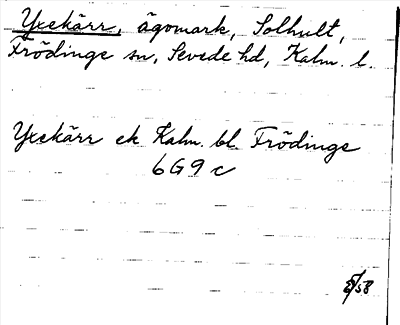 Yxekärr, ägomark, Solhult,
Frödinge sn, Sevede hd, Kalm. l.
Yxekärr ek Kalm. bl. Frödinge
6G9c